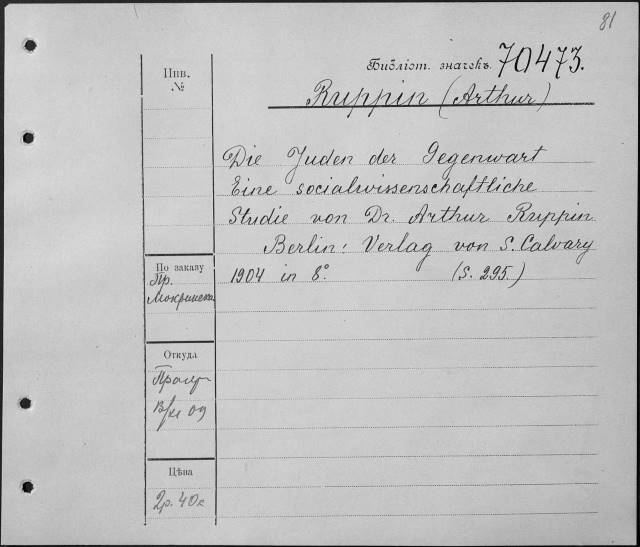 81
Инв.
№
Библіот. значекъ. 70473.
Ruppin (Arthur)
Die Juden der Gegenwart
Eine socialwissenschaftliche
Studie von Dr. Arthur Ruppin.
Berlin: Verlag von S. Calvary
1904 in 8°. (S. 295.)
По заказу
Пр.
Откуда
09
Цѣна
2р. 40к